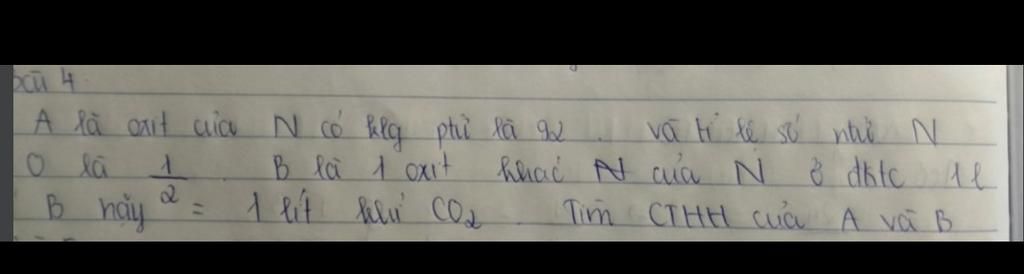 bài 4
A là oxit của N có klg ptử là 92. và tỉ lệ số ntử N
O là 1/2. B là 1 oxit khác N của N ở đktc 1l
B này = 1 lít khí CO₂. Tìm CTHH của A và B